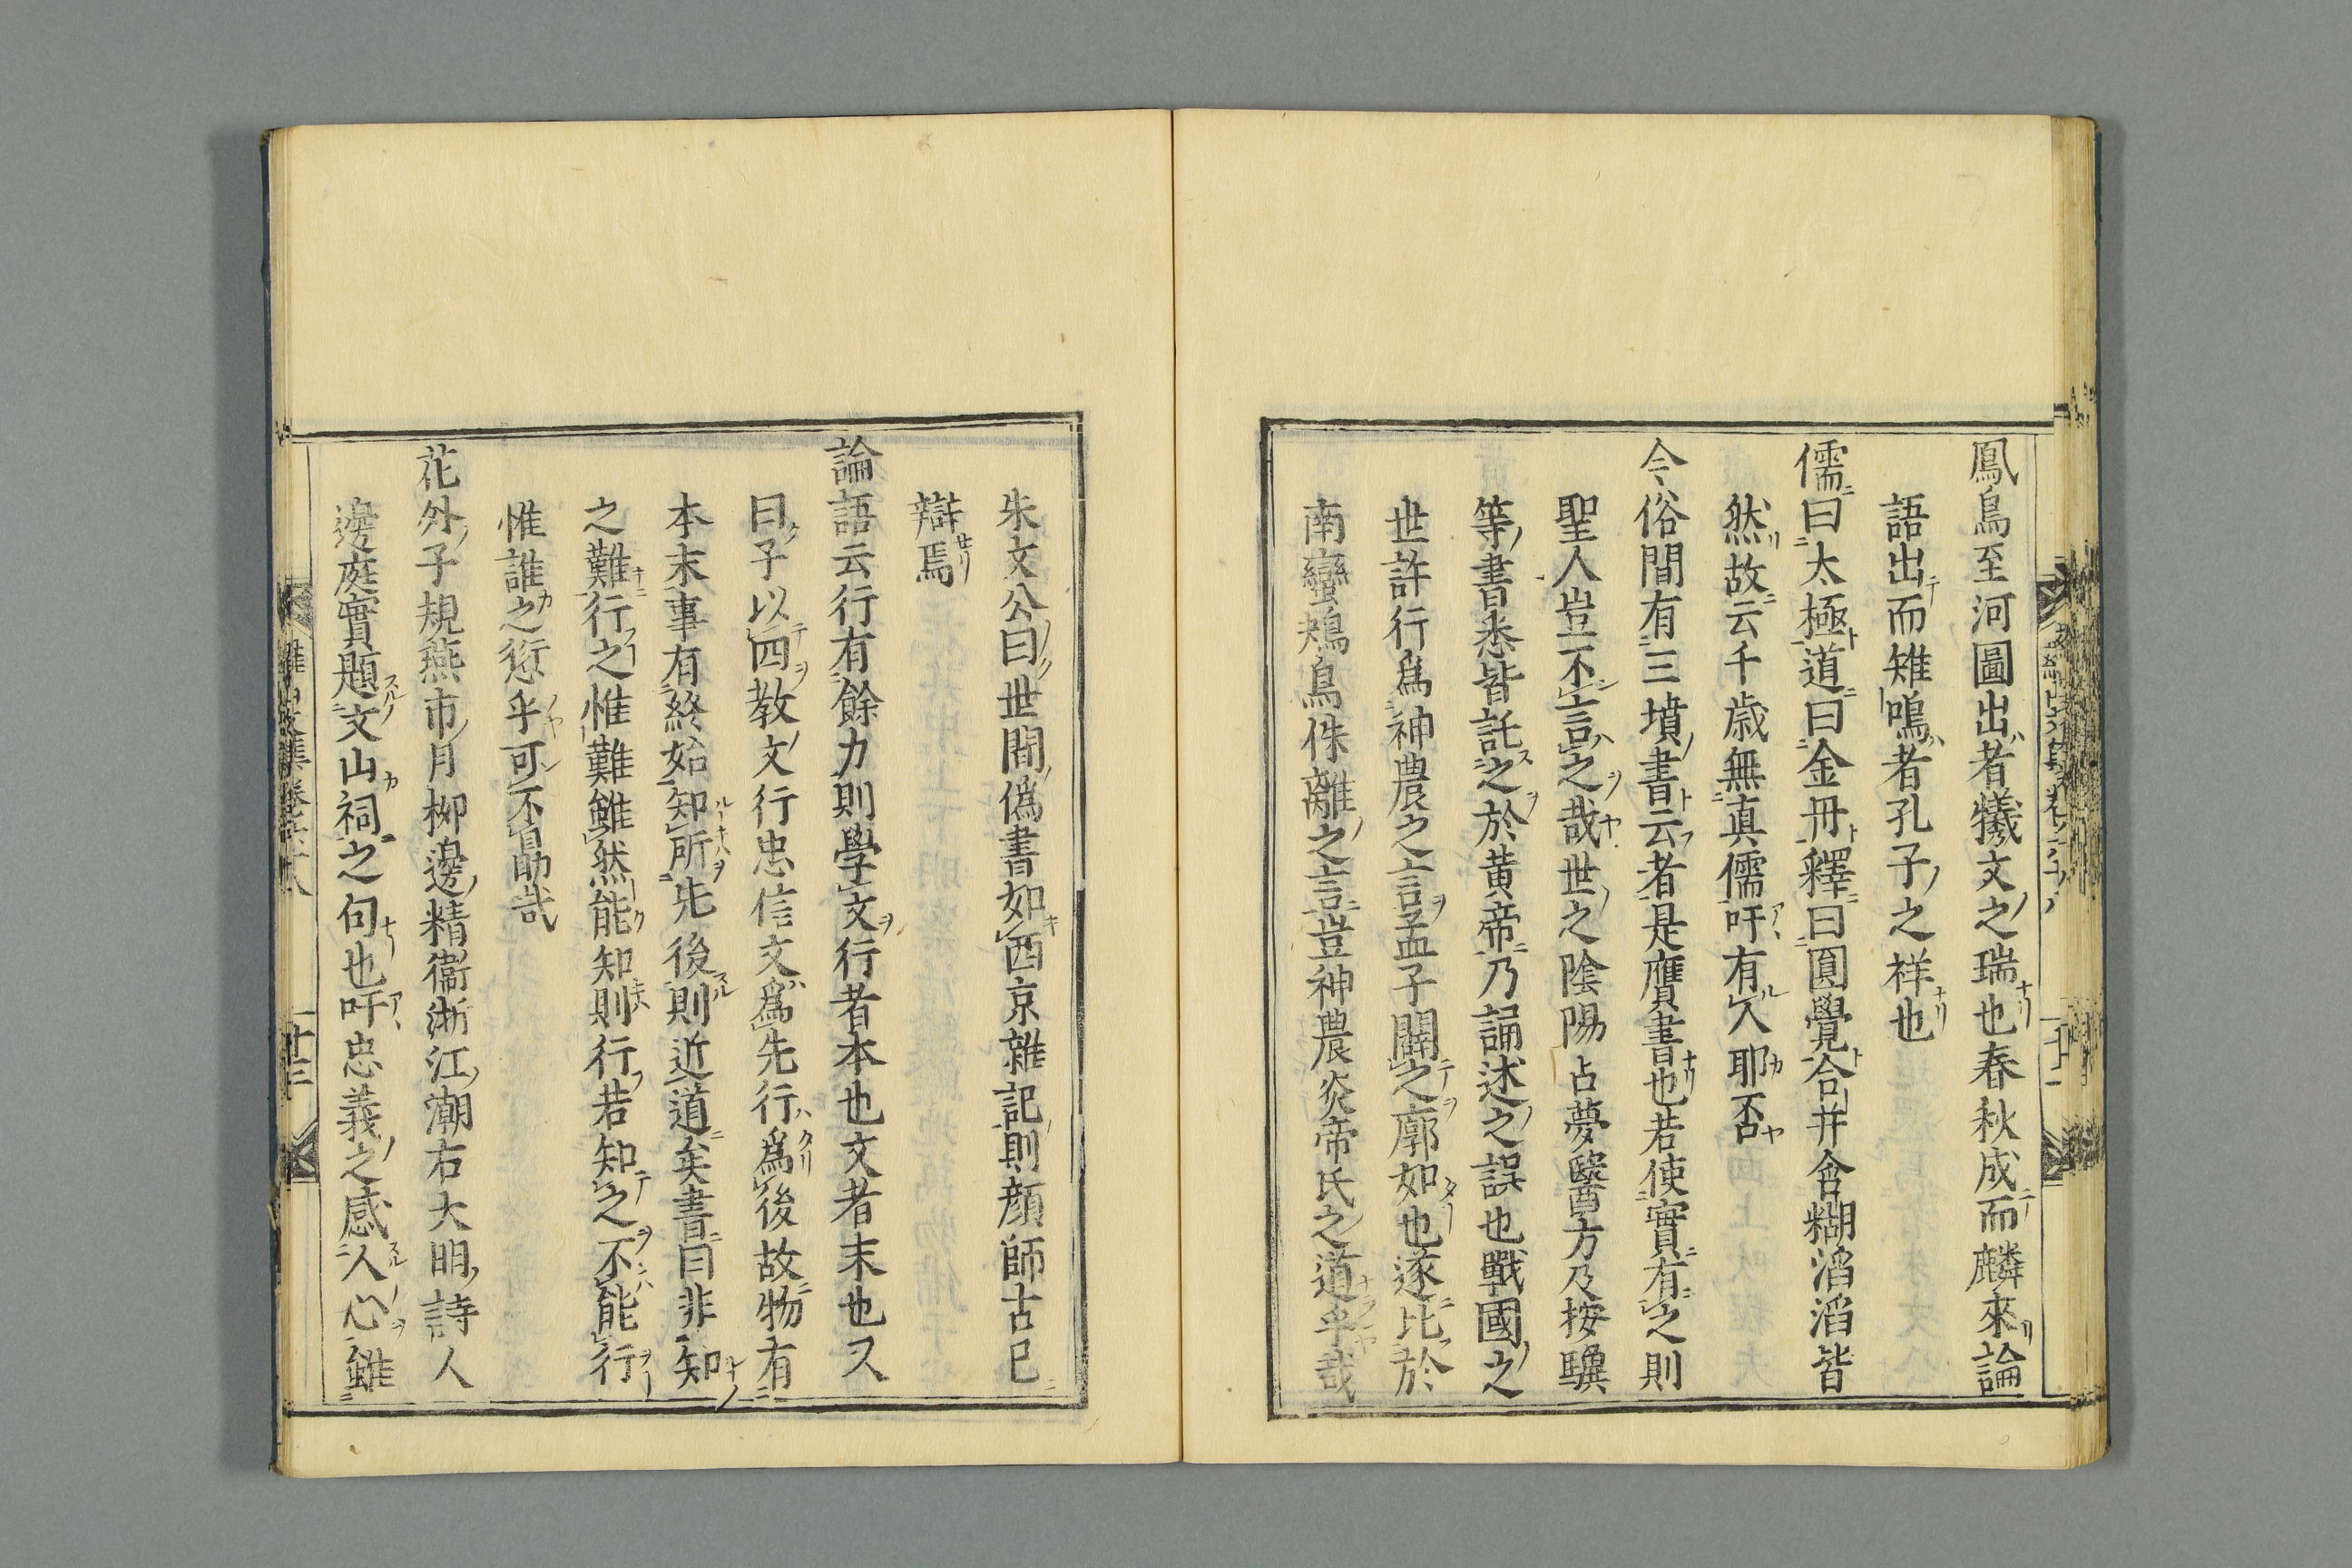 鳳鳥至河圖出者犧文之瑞也春秋成而麟來論
語出而雉鳴者孔子之祥也
儒曰太極道曰金丹釋曰圓覺合并含糊滔滔皆
然故云千歲無真儒吁有人耶否
今俗間有三墳書云者是贋書也若使實有之則
聖人豈不言之哉世之陰陽占夢醫方及按驥
等書悉皆託之於黄帝乃誦述之誤也戰國之
世許行爲神農之言孟子闢之廓如也遂比於
南蠻鴂鳥侏離之言豈神農炎帝氏之道乎哉
朱文公曰世間僞書如西京雜記則顔師古已
辯焉
論語云行有餘力則學文行者本也文者末也又
曰子以四教文行忠信文爲先行爲後故物有
本末事有終始知所先後則近道矣書曰非知
之難行之惟難雖然能知則行若知之不能行
惟誰之愆乎可不勗哉
花外子規燕市月柳邊精衞浙江潮右大明詩人
邊庭實題文山祠之句也吁忠義之感人心雖
十三